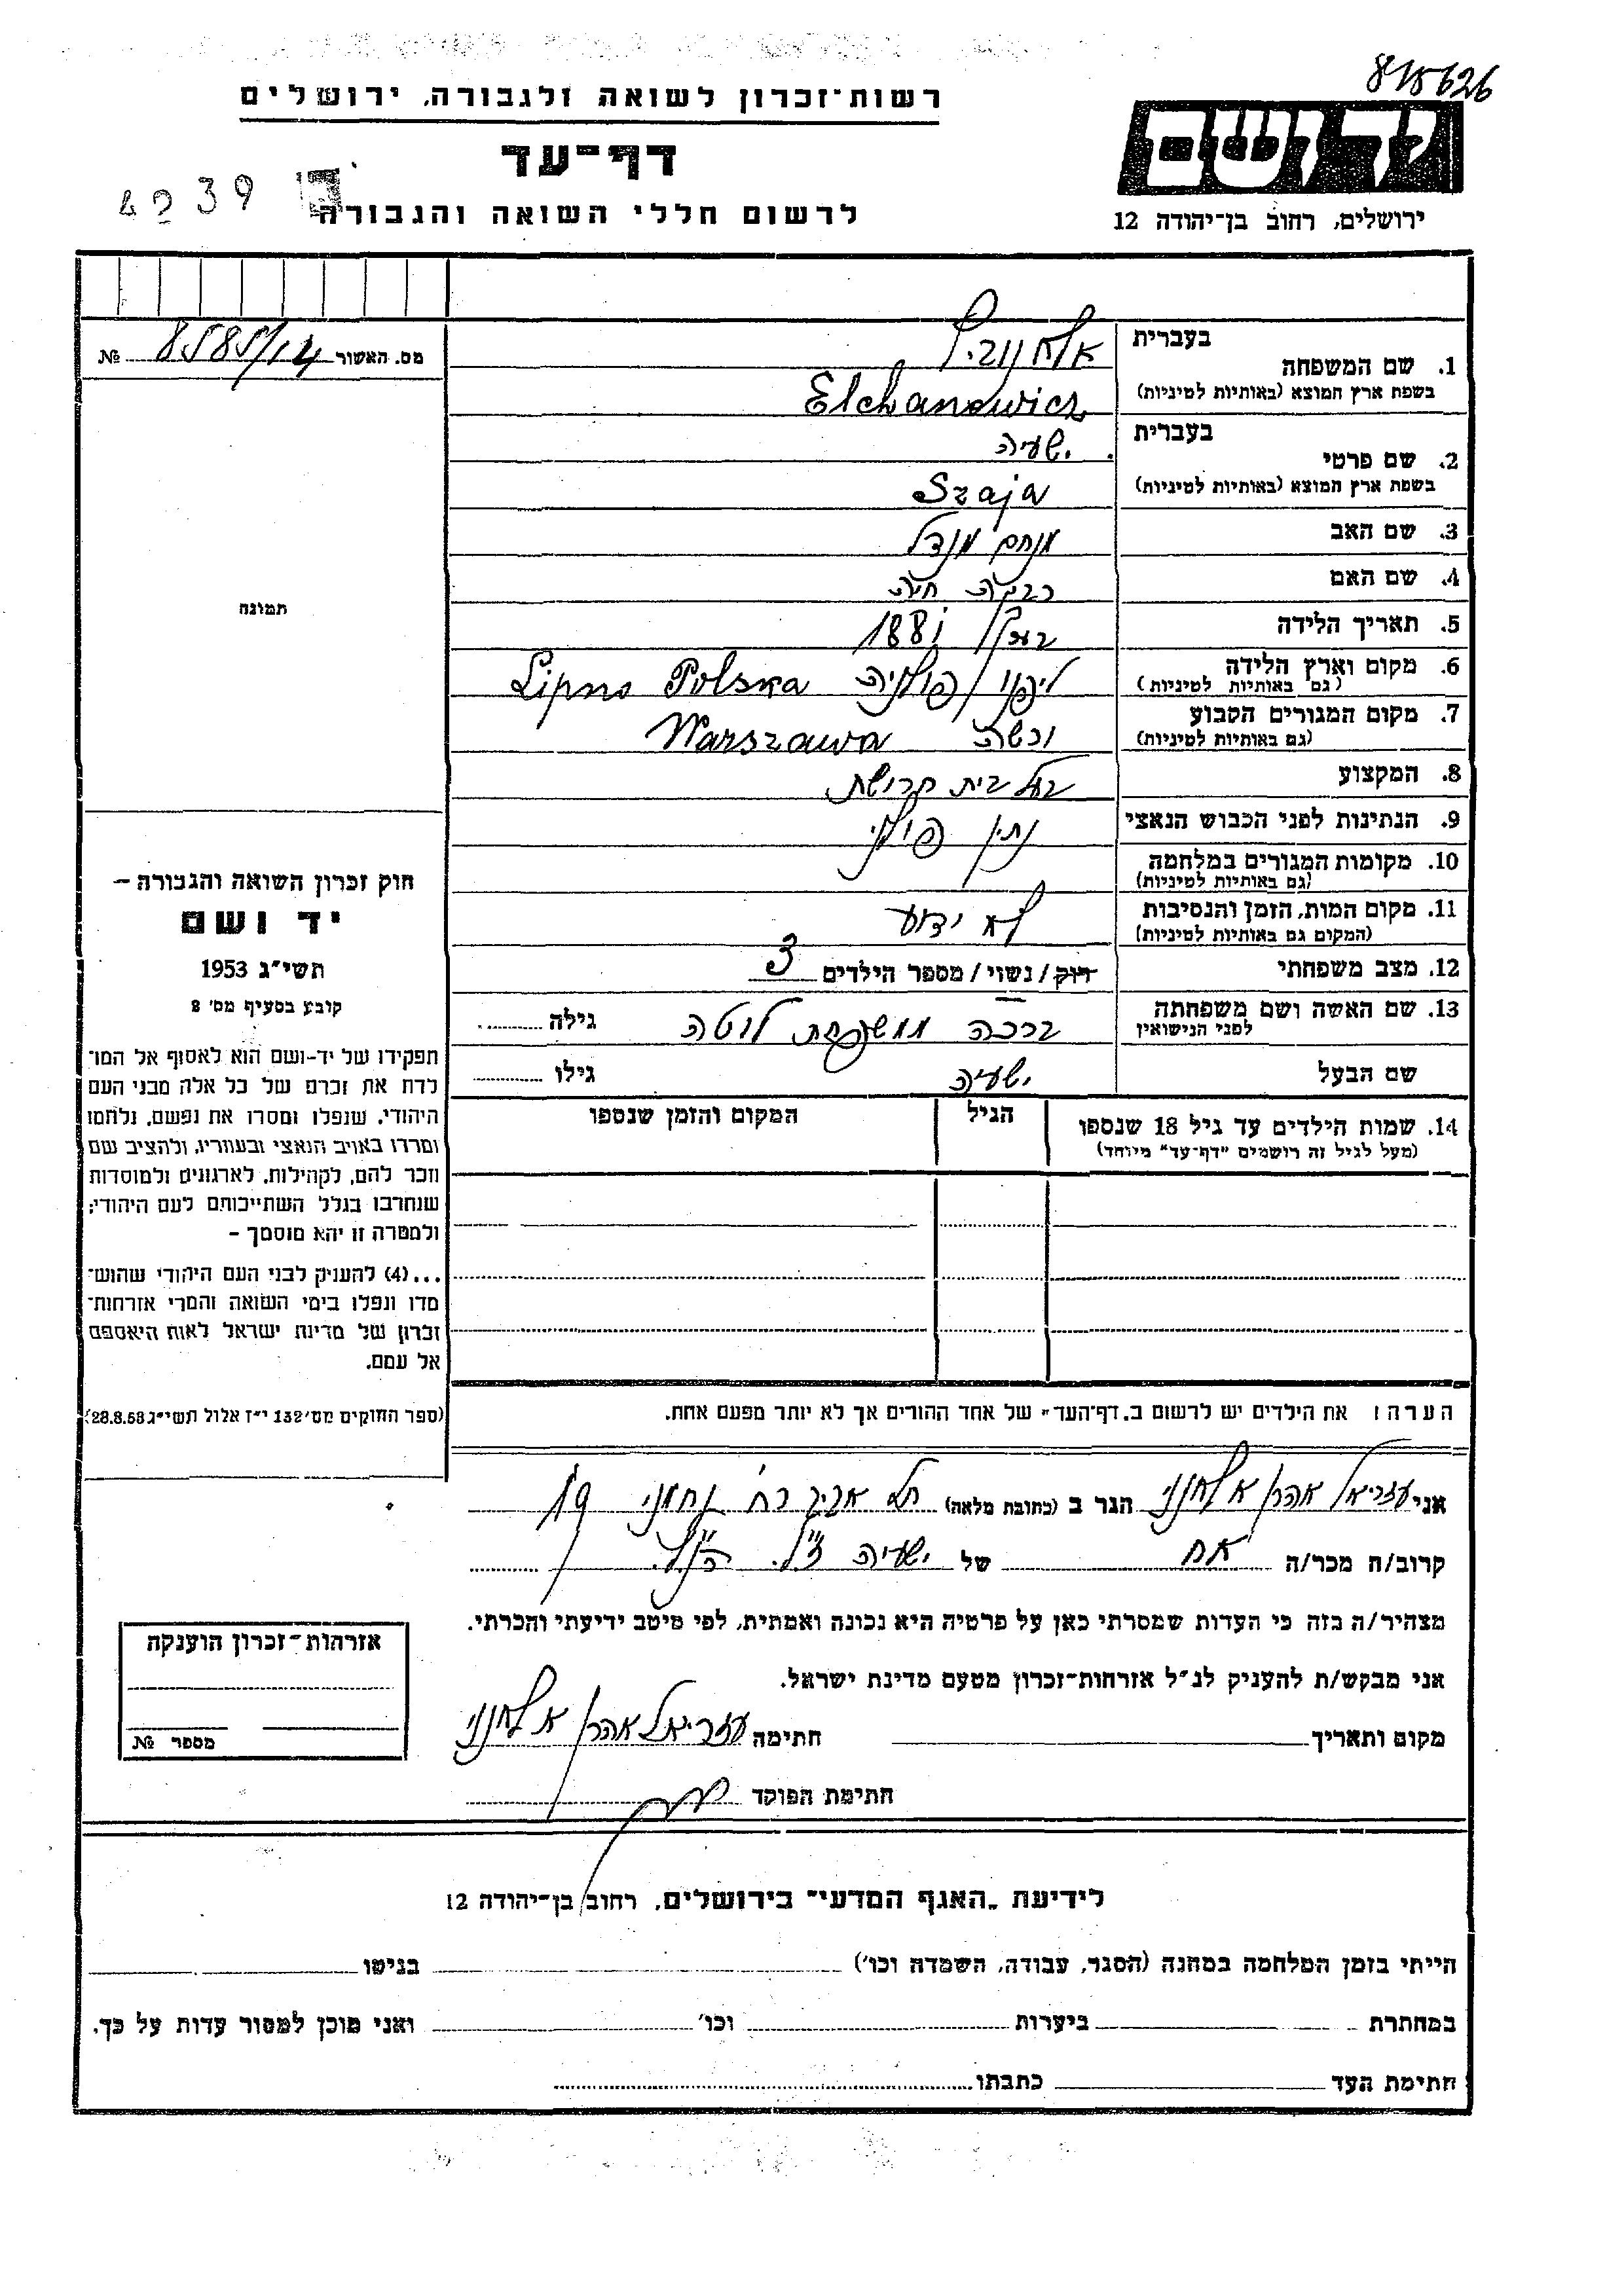 818626
רשות־זכרון לשואה ולגבורה, ירושלים
יד ושם
דף־עד
4239
לרשום חללי השואה והגבורה
ירושלים, רחוב בן־יהודה 12
מס. האשור № 8585/14
בעברית
1. שם המשפחה אלחנוביץ
בשפת ארץ המוצא (באותיות לטיניות) Elchanowicz
בעברית
2. שם פרטי ישעיה
בשפת ארץ המוצא (באותיות לטיניות) Szaja
3. שם האב מנחם מנדל
4. שם האם רבקה חיה
5. תאריך הלידה 1881
6. מקום וארץ הלידה ליפנו / פולניה Lipno Polska
(גם באותיות לטיניות)
7. מקום המגורים הקבוע ורשה Warszawa
(גם באותיות לטיניות)
8. המקצוע בעל בית חרושת
9. הנתינות לפני הכבוש הנאצי נתין פולני
10. מקומות המגורים במלחמה
(גם באותיות לטיניות)
11. מקום המות, הזמן והנסיבות לא ידוע
(המקום גם באותיות לטיניות)
12. מצב משפחתי רוק / נשוי / מספר הילדים 3
13. שם האשה ושם משפחתה ברכה ממשפחת לוטה גילה
לפני הנישואין
שם הבעל ישעיה גילו
14. שמות הילדים עד גיל 18 שנספו הגיל המקום והזמן שנספו
(מעל לגיל זה רושמים "דף־עד" מיוחד)
תמונה
חוק זכרון השואה והגבורה –
יד ושם
תשי״ג 1953
קובע בסעיף מס׳ 8
תפקידו של יד-ושם הוא לאסוף אל המו־
לדת את זכרם של כל אלה מבני העם
היהודי, שנפלו ומסרו את נפשם, נלחמו
ומרדו באויב הנאצי ובעוזריו, ולהציב שם
וזכר להם, לקהילות, לארגונים ולמוסדות
שנחרבו בגלל השתייכותם לעם היהודי;
ולמטרה זו יהא מוסמך –
...(4) להעניק לבני העם היהודי שהוש־
מדו ונפלו בימי השואה והמרי אזרחות־
זכרון של מדינת ישראל לאות היאספם
אל עמם.
(ספר החוקים מס׳ 132 י״ז אלול תשי״ג 28.8.53)
הערה: את הילדים יש לרשום ב„דף־העד" של אחד ההורים אך לא יותר מפעם אחת.
אני עזריאל אהרן אלחנני הגר ב (כתובת מלאה) תל אביב רח׳ נחמני 19
קרוב/ה מכר/ה אח של ישעיה ז״ל. הנ״ל.
מצהיר/ה בזה כי העדות שמסרתי כאן על פרטיה היא נכונה ואמתית, לפי מיטב ידיעתי והכרתי.
אני מבקש/ת להעניק לנ״ל אזרחות-זכרון מטעם מדינת ישראל.
מקום ותאריך חתימה עזריאל אהרן אלחנני
חתימת הפוקד
אזרחות־זכרון הוענקה
מספר №
לידיעת „האגף המדעי" בירושלים, רחוב בן־יהודה 12
הייתי בזמן המלחמה במחנה (הסגר, עבודה, השמדה וכו׳) בגיטו
במחתרת ביערות וכו׳ ואני מוכן למסור עדות על כך.
חתימת העד כתבתו